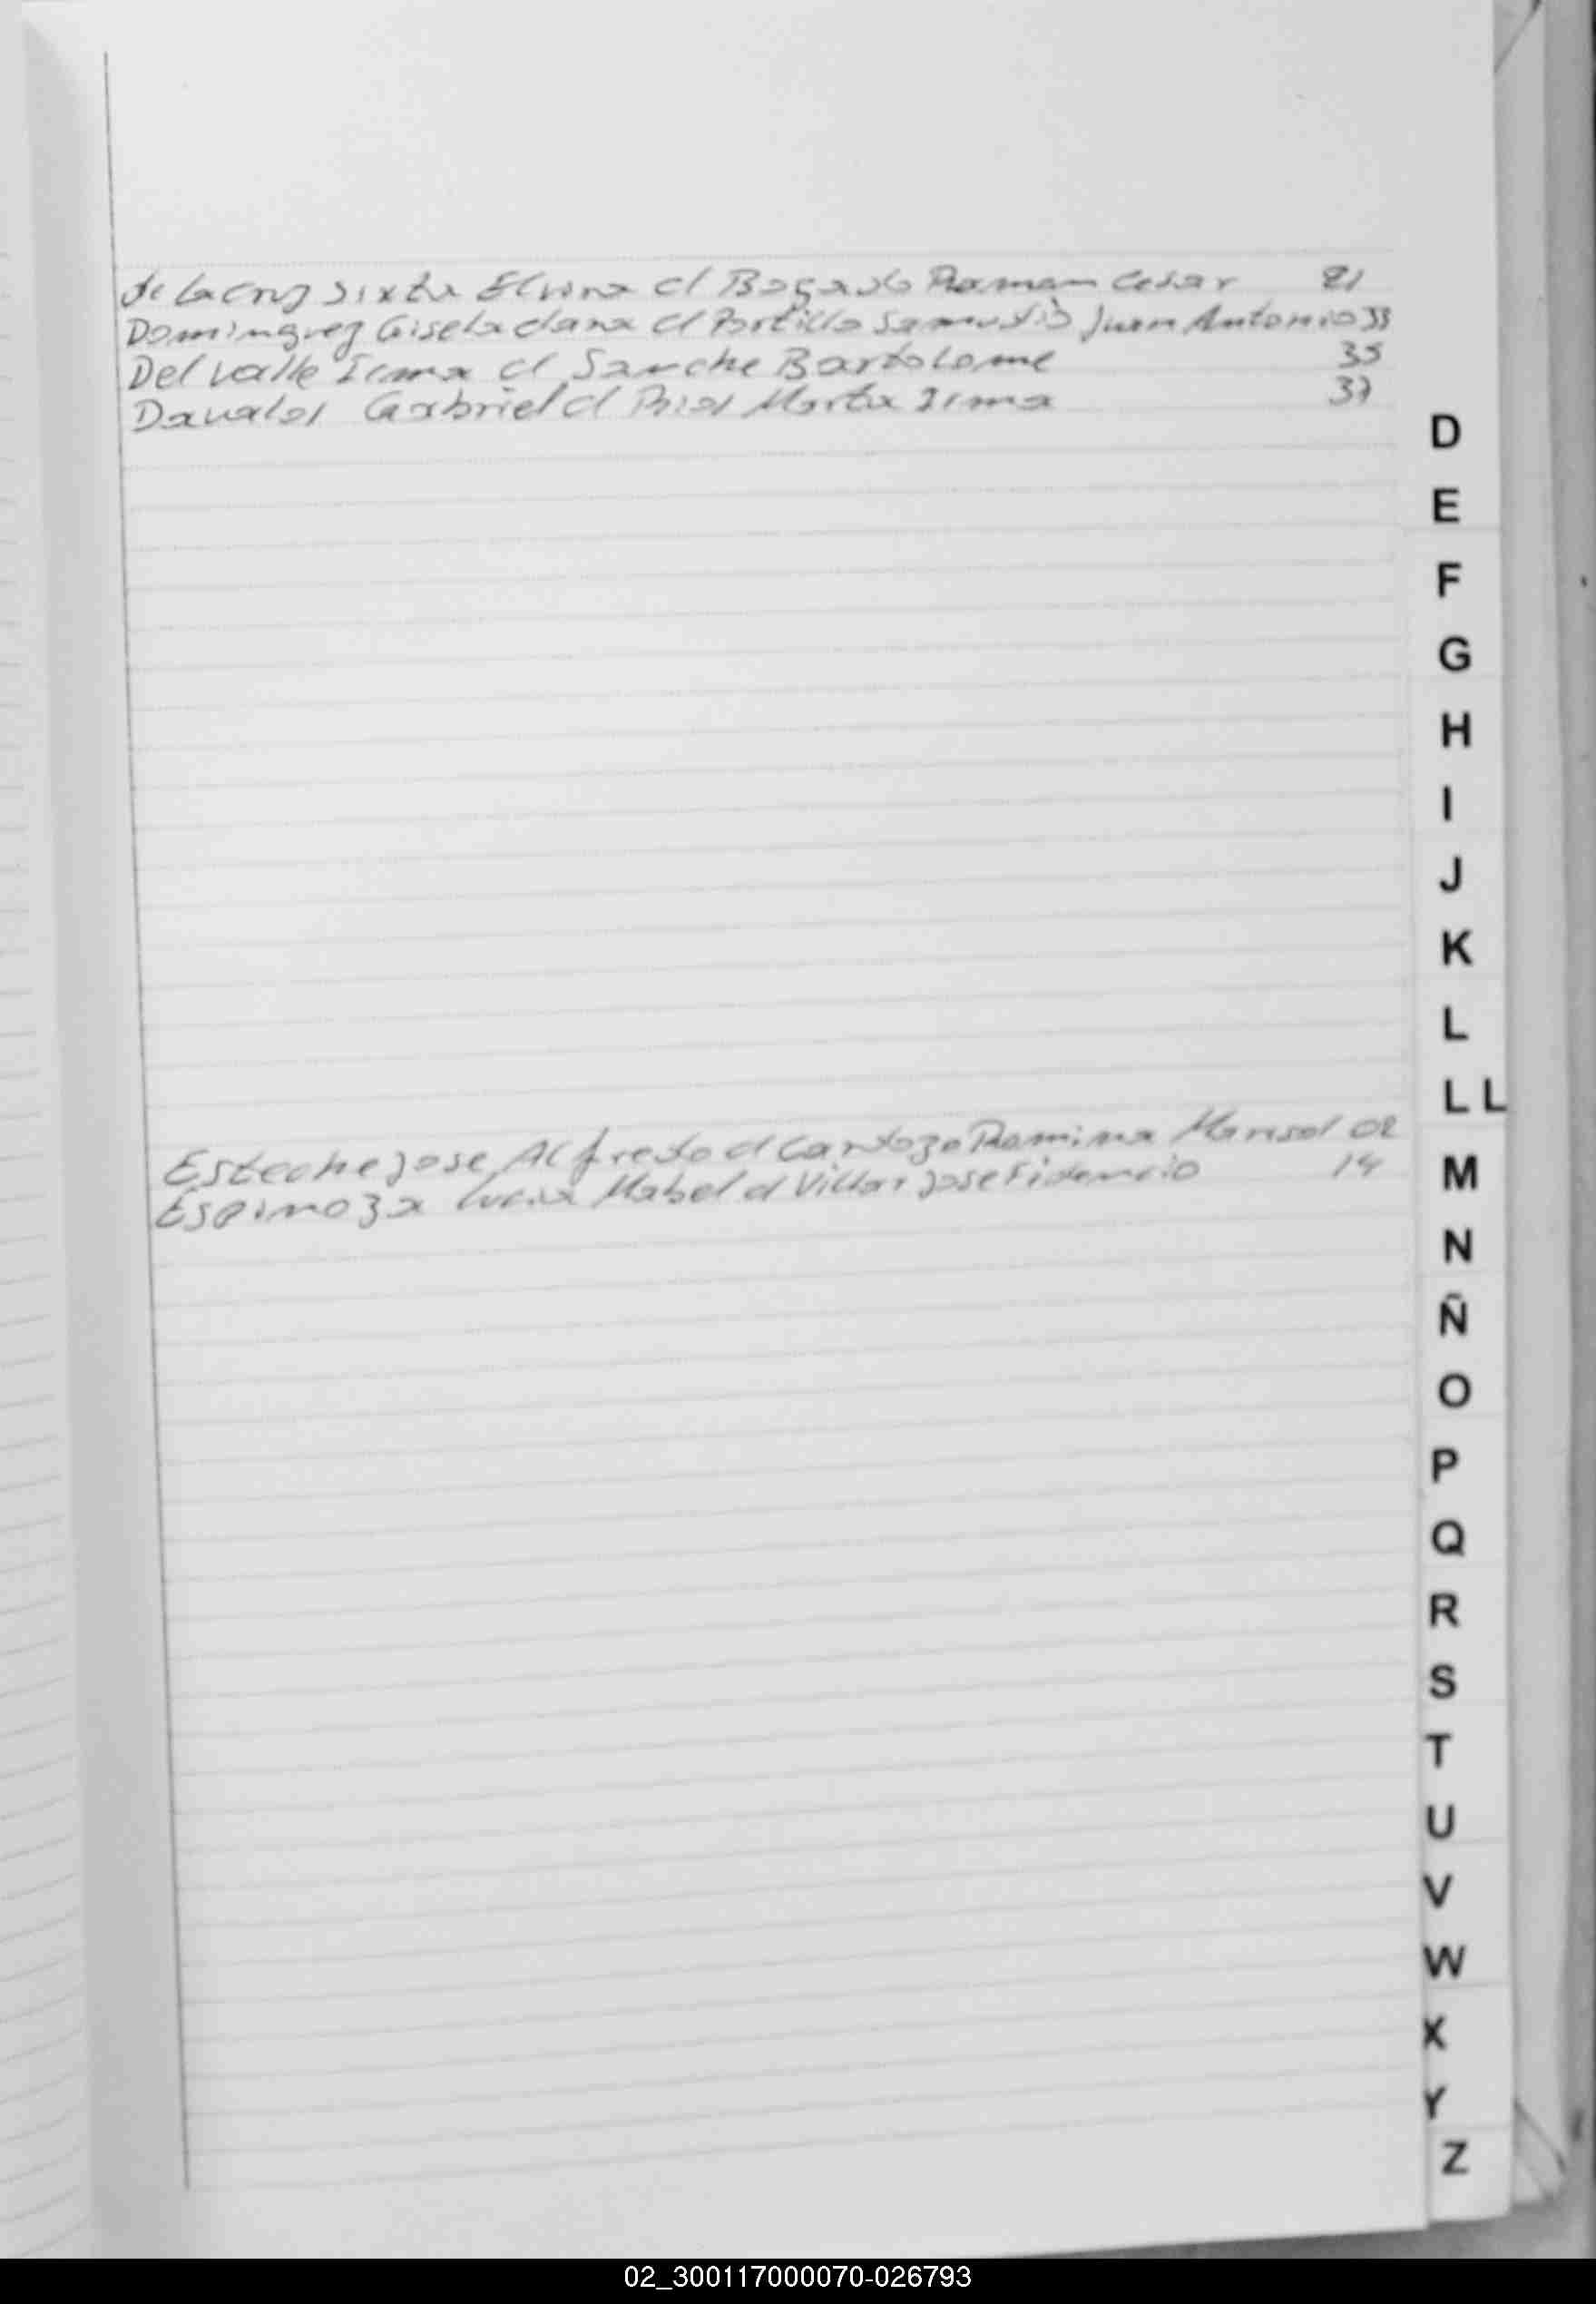 de la cruz Sixta Elvira c/ Bogado Ramon Cesar 21
Dominguez Gisela clara c/ Portillo Samudio Juan Antonio 33
Del valle Irma c/ Sanche Bartolome 35
Davalos Gabriel c/ Rios Marta Irma 37
D
E
F
G
H
I
J
K
L
LL
Esteche jose Alfredo c/ Cardozo Romina Marisol 02
Espinoza Lucia Mabel c/ Villar jose Fidencio 14
M
N
Ñ
O
P
Q
R
S
T
U
V
W
X
Y
Z
02_300117000070-026793